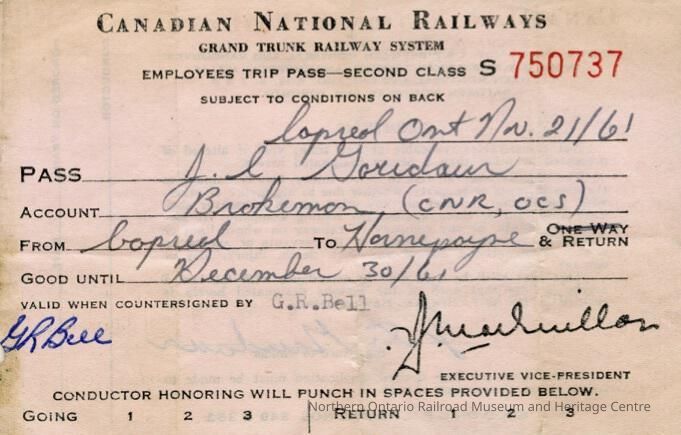 CANADIAN NATIONAL RAILWAYS
GRAND TRUNK RAILWAY SYSTEM
EMPLOYEES TRIP PASS—SECOND CLASS S 750737
SUBJECT TO CONDITIONS ON BACK
Capreol Ont Nv. 21/61
PASS J. C.
ACCOUNT Brakeman (CNR, OCS)
FROM Capreol TO Hornepayne ONE WAY & RETURN
GOOD UNTIL December 30/61
VALID WHEN COUNTERSIGNED BY G.R.Bell
GR Bell
EXECUTIVE VICE-PRESIDENT
CONDUCTOR HONORING WILL PUNCH IN SPACES PROVIDED BELOW.
Northern Ontario Railroad Museum and Heritage Centre
GOING 1 2 3 RETURN 1 2 3